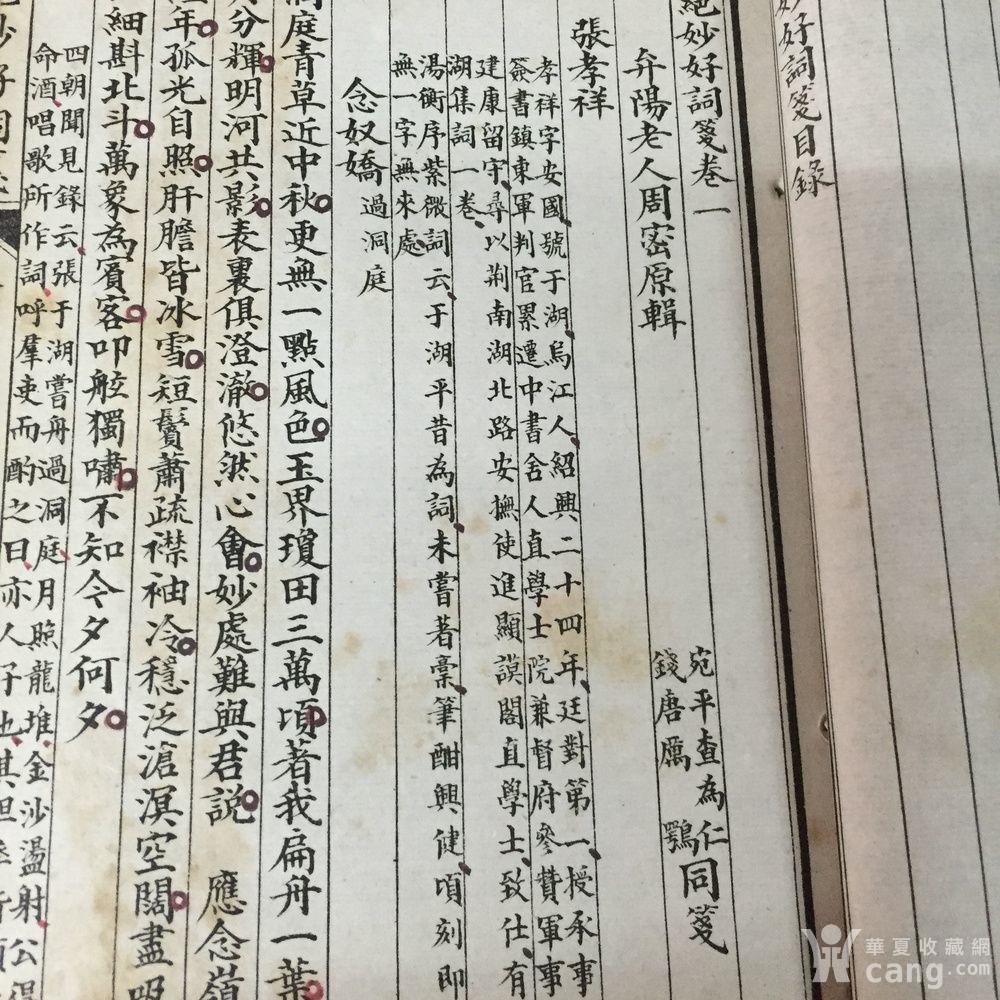 妙好詞箋目錄
絕妙好詞箋卷一
弁陽老人周密原輯
宛平查為仁
錢唐厲鶚
同箋
張孝祥
孝祥字安國、號于湖、烏江人、紹興二十四年、廷對第一、授承事
簽書鎮東軍判官累遷中書舍人直學士院兼督府參贊軍事
建康留守、尋以荊南湖北路安撫使進顯謨閣直學士、致仕、有
湖集詞一卷、
湯衡序紫微詞云、于湖平昔為詞、未嘗著稾、筆酣興健、頃刻即
無一字無來處、
念奴嬌 過洞庭
洞庭青草近中秋更無一點風色玉界瓊田三萬頃著我扁舟一葉
分輝明河共影表裏俱澄澈悠然心會妙處難與君說 應念嶺
年孤光自照肝膽皆冰雪短鬢蕭疏襟袖冷穩泛滄溟空闊盡吸
細斟北斗萬象為賓客叩舷獨嘯不知今夕何夕
四朝聞見錄云、張于湖嘗舟過洞庭、月照龍堆、金沙盪射、公得
命酒、唱歌所作詞、呼羣吏而酌之曰、亦人子也、其坦
華夏收藏網
cang.com